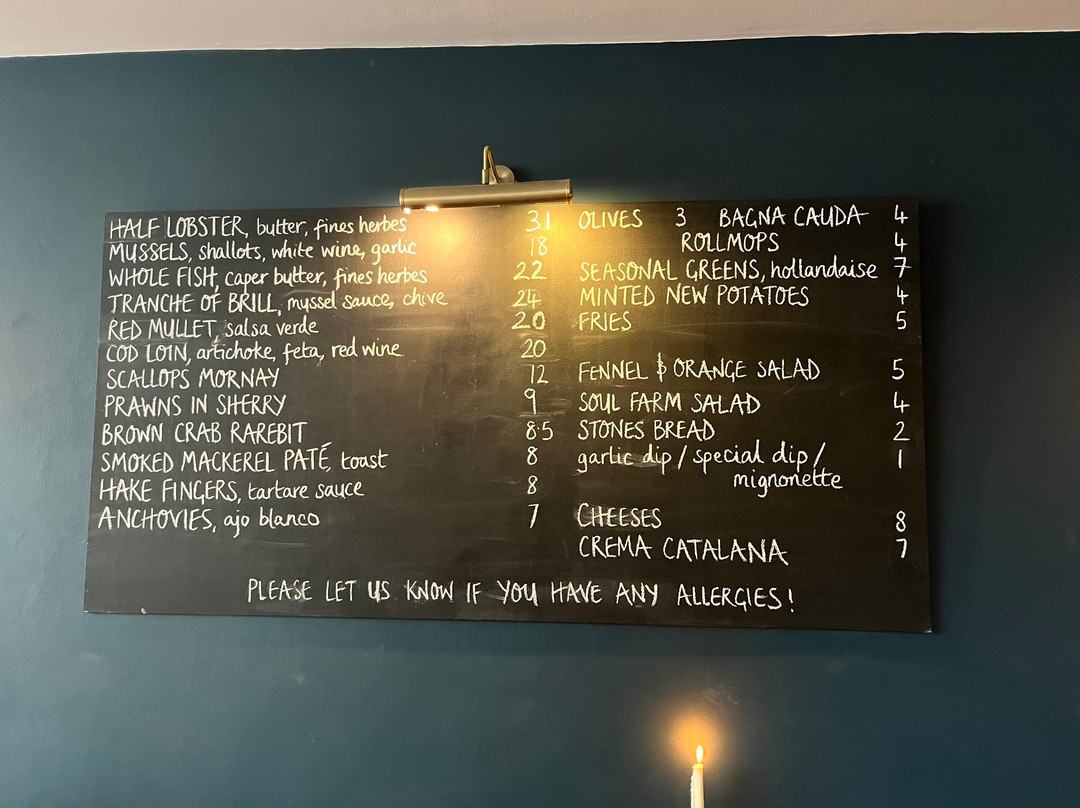 HALF LOBSTER, butter, fines herbes 31
MUSSELS, shallots, white wine, garlic 18
WHOLE FISH, caper butter, fines herbes 22
TRANCHE OF BRILL, mussel sauce, chive 24
RED MULLET, salsa verde 20
COD LOIN, artichoke, feta, red wine 20
SCALLOPS MORNAY 12
PRAWNS IN SHERRY 9
BROWN CRAB RAREBIT 8.5
SMOKED MACKEREL PATÉ, toast 8
HAKE FINGERS, tartare sauce 8
ANCHOVIES, ajo blanco 7
OLIVES 3 BAGNA CAUDA 4
ROLLMOPS 4
SEASONAL GREENS, hollandaise 7
MINTED NEW POTATOES 4
FRIES 5
FENNEL & ORANGE SALAD 5
SOUL FARM SALAD 4
STONES BREAD 2
garlic dip / special dip / 1
mignonette
CHEESES 8
CREMA CATALANA 7
PLEASE LET US KNOW IF YOU HAVE ANY ALLERGIES!